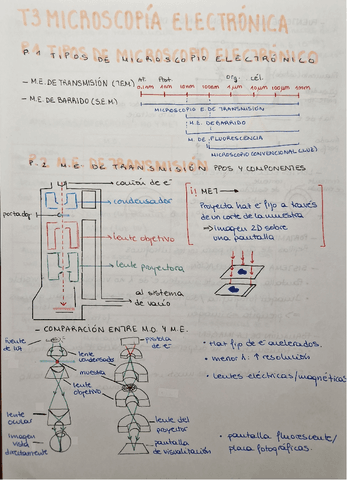 T3 MICROSCOPÍA ELECTRÓNICA
P.1 TIPOS DE MICROSCOPIO ELECTRÓNICO
- M.E. DE TRANSMISIÓN (TEM)
- M.E. DE BARRIDO (SEM)
At. Prot. Org. Cél.
0,1nm 1nm 10nm 100nm 1μm 10μm 100μm 1mm
MICROSCOPIO E. DE TRANSMISIÓN
M.E. DE BARRIDO
M. DE FLUORESCENCIA
MICROSCOPIO CONVENCIONAL (LUZ)
P.2 M.E. DE TRANSMISIÓN PPOS Y COMPONENTES
cañón de e⁻
condensador
portador
lente objetivo
lente proyectora
al sistema de vacío
MET
Proyecta haz e⁻ fijo a través
de un corte de la muestra
⇒ imagen 2D sobre
una pantalla
- COMPARACIÓN ENTRE M.O. Y M.E.
fuente de luz
lente condensador
muestra
lente objetivo
lente ocular
imagen vista directamente
de e⁻
lente del proyector
pantalla de visualización
• Haz fijo de e⁻ acelerados.
• menor λ: ↑ resolución
• Lentes eléctricas/magnéticas
• pantalla fluorescente/
placa fotográficas.